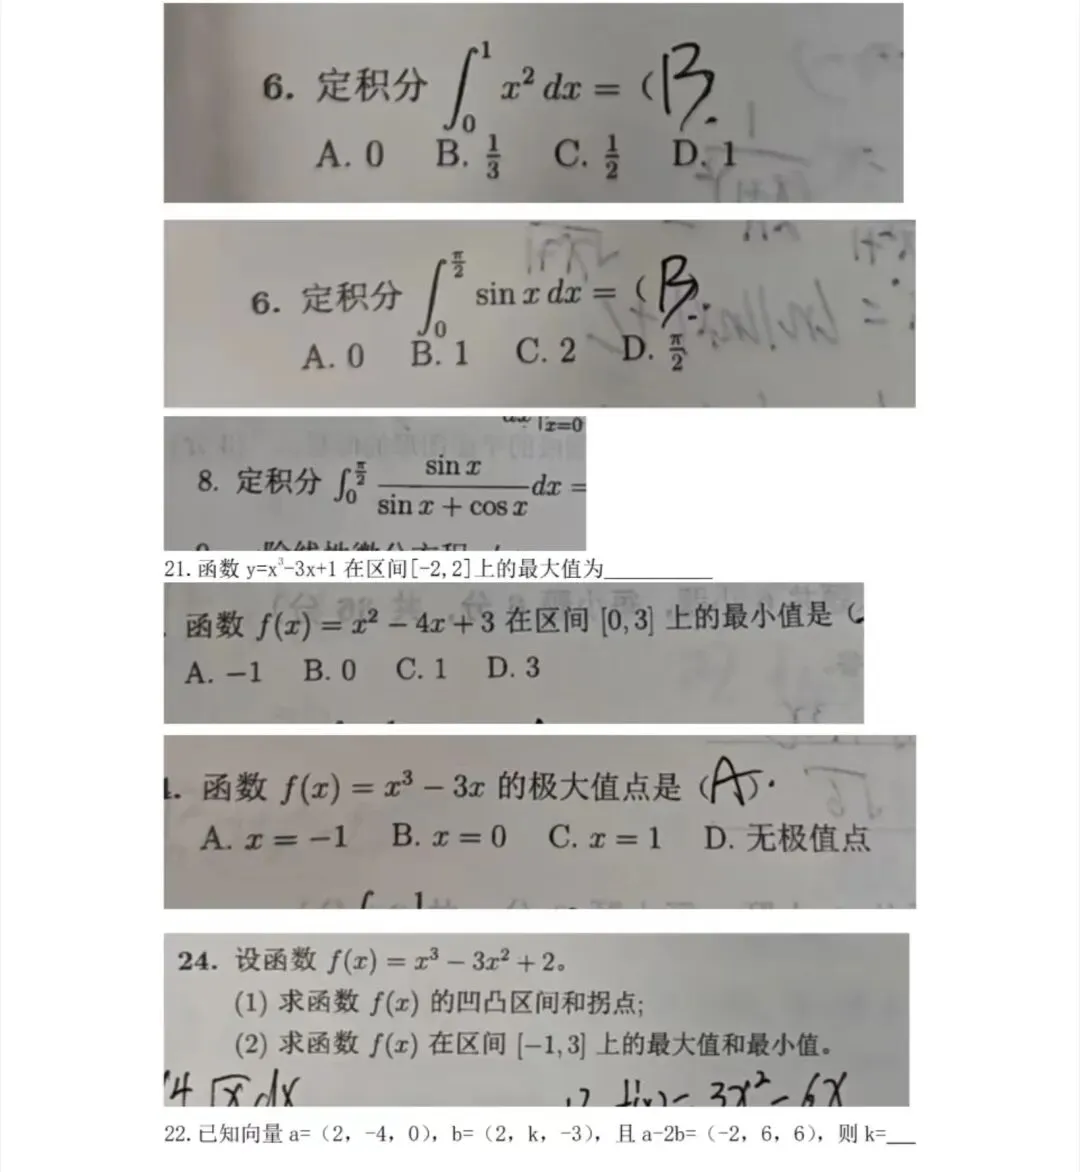 6. 定积分 ∫₀¹ x² dx = (B.
A. 0 B. 1/3 C. 1/2 D. 1
6. 定积分 ∫₀^(π/2) sin x dx = (B.
A. 0 B. 1 C. 2 D. π/2
x=0
8. 定积分 ∫₀^(π/2) sin x / (sin x + cos x) dx =
21.函数 y=x³-3x+1 在区间[-2,2]上的最大值为
函数 f(x) = x² − 4x + 3 在区间 [0,3] 上的最小值是 (
A. −1 B. 0 C. 1 D. 3
函数 f(x) = x³ − 3x 的极大值点是 (A).
A. x = −1 B. x = 0 C. x = 1 D. 无极值点
24. 设函数 f(x) = x³ − 3x² + 2。
(1) 求函数 f(x) 的凹凸区间和拐点;
(2) 求函数 f(x) 在区间 [−1,3] 上的最大值和最小值。
4 √x dx
= 3x² - 6x
22.已知向量 a=（2，-4，0），b=（2，k，-3），且 a-2b=（-2，6，6），则 k=